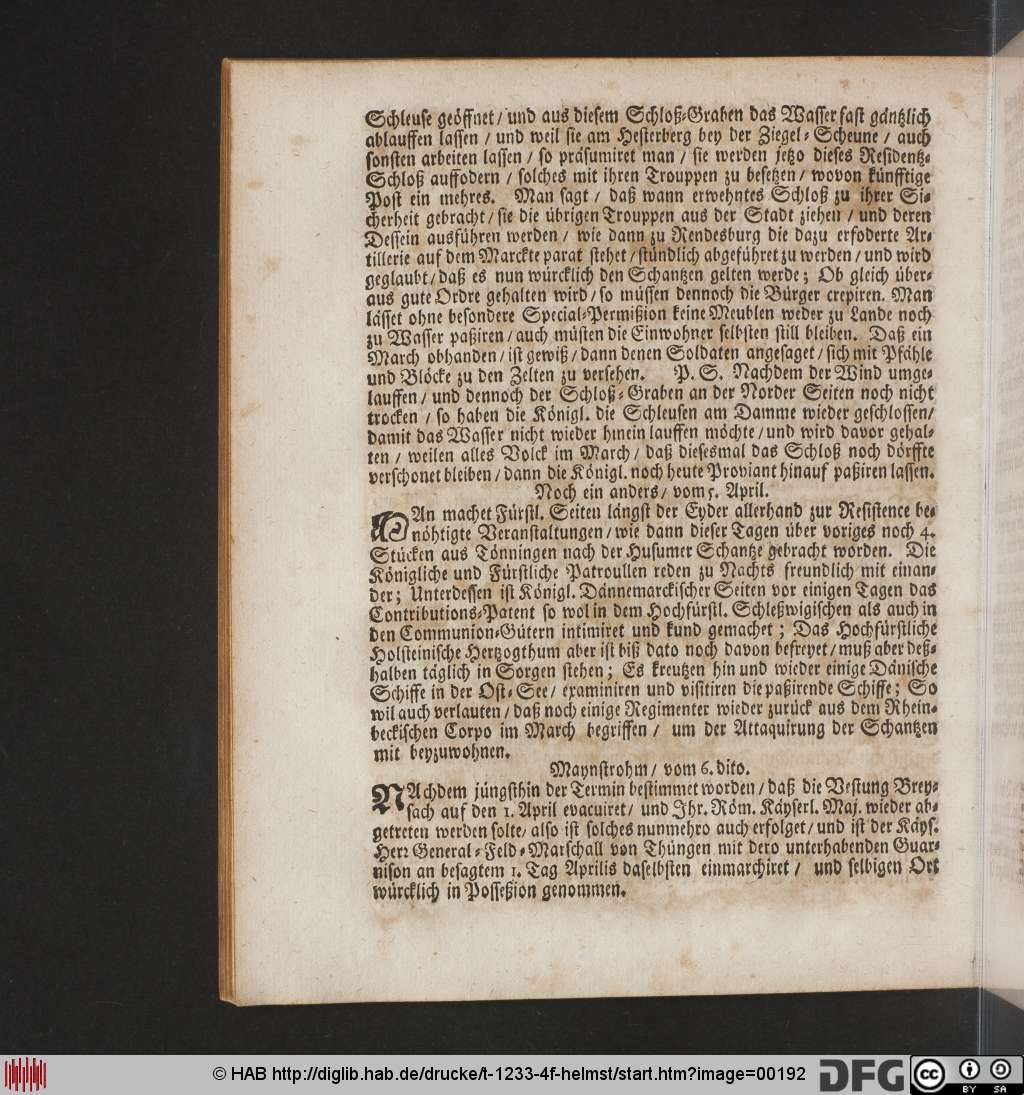 Schleuse geöffnet / und aus diesem Schloß-Graben das Wasser fast gäntzlich
ablauffen lassen / und weil sie am Hesterberg bey der Ziegel-Scheune / auch
sonsten arbeiten lassen / so präsumiret man / sie werden jetzo dieses Residentz-
Schloß auffodern / solches mit ihren Trouppen zu besetzen / wovon künfftige
Post ein mehres. Man sagt / daß wann erwehntes Schloß zu ihrer Si-
cherheit gebracht / sie die übrigen Trouppen aus der Stadt ziehen / und deren
Dessein ausführen werden / wie dann zu Rendesburg die dazu erfoderte Ar-
tillerie auf dem Marckte parat stehet / stündlich abgeführet zu werden / und wird
geglaubt / daß es nun würcklich den Schantzen gelten werde; Ob gleich über-
aus gute Ordre gehalten wird / so müssen dennoch die Bürger crepiren. Man
lässet ohne besondere Special-Permißion keine Meublen weder zu Lande noch
zu Wasser paßiren / auch müsten die Einwohner selbsten still bleiben. Daß ein
March obhanden / ist gewiß / dann denen Soldaten angesaget / sich mit Pfähle
und Blöcke zu den Zelten zu versehen. P. S. Nachdem der Wind umge-
lauffen / und dennoch der Schloß-Graben an der Norder Seiten noch nicht
trocken / so haben die Königl. die Schleusen am Damme wieder geschlossen /
damit das Wasser nicht wieder hinein lauffen möchte / und wird davor gehal-
ten / weilen alles Volck im March / daß diesesmal das Schloß noch dörffte
verschonet bleiben / dann die Königl. noch heute Proviant hinauf paßiren lassen.
Noch ein anders / vom 5. April.
MAn machet Fürstl. Seiten längst der Eyder allerhand zur Resistence be-
nöhtigte Veranstaltungen / wie dann dieser Tagen über voriges noch 4.
Stücken aus Tönningen nach der Husumer Schantze gebracht worden. Die
Königliche und Fürstliche Patroullen reden zu Nachts freundlich mit einan-
der; Unterdessen ist Königl. Dännemarckischer Seiten vor einigen Tagen das
Contributions-Patent so wol in dem Hochfürstl. Schleßwigischen als auch in
den Communion-Gütern intimiret und kund gemachet; Das Hochfürstliche
Holsteinische Hertzogthum aber ist biß dato noch davon befreyet / muß aber deß-
halben täglich in Sorgen stehen; Es kreutzen hin und wieder einige Dänische
Schiffe in der Ost-See / examiniren und visitiren die paßirende Schiffe; So
wil auch verlauten / daß noch einige Regimenter wieder zurück aus dem Rhein-
beckischen Corpo im March begriffen / um der Attaquirung der Schantzen
mit beyzuwohnen.
Maynstrohm / vom 6. dito.
NAchdem jüngsthin der Termin bestimmet worden / daß die Vestung Brey-
sach auf den 1. April evacuiret / und Ihr. Röm. Käyserl. Maj. wieder ab-
getreten werden solte / also ist solches nunmehro auch erfolget / und ist der Käys.
Herr General-Feld-Marschall von Thüngen mit dero unterhabenden Guar-
nison an besagtem 1. Tag Aprilis daselbsten einmarchiret / und selbigen Ort
würcklich in Posseßion genommen.
© HAB http://diglib.hab.de/drucke/t-1233-4f-helmst/start.htm?image=00192
DFG
cc BY SA